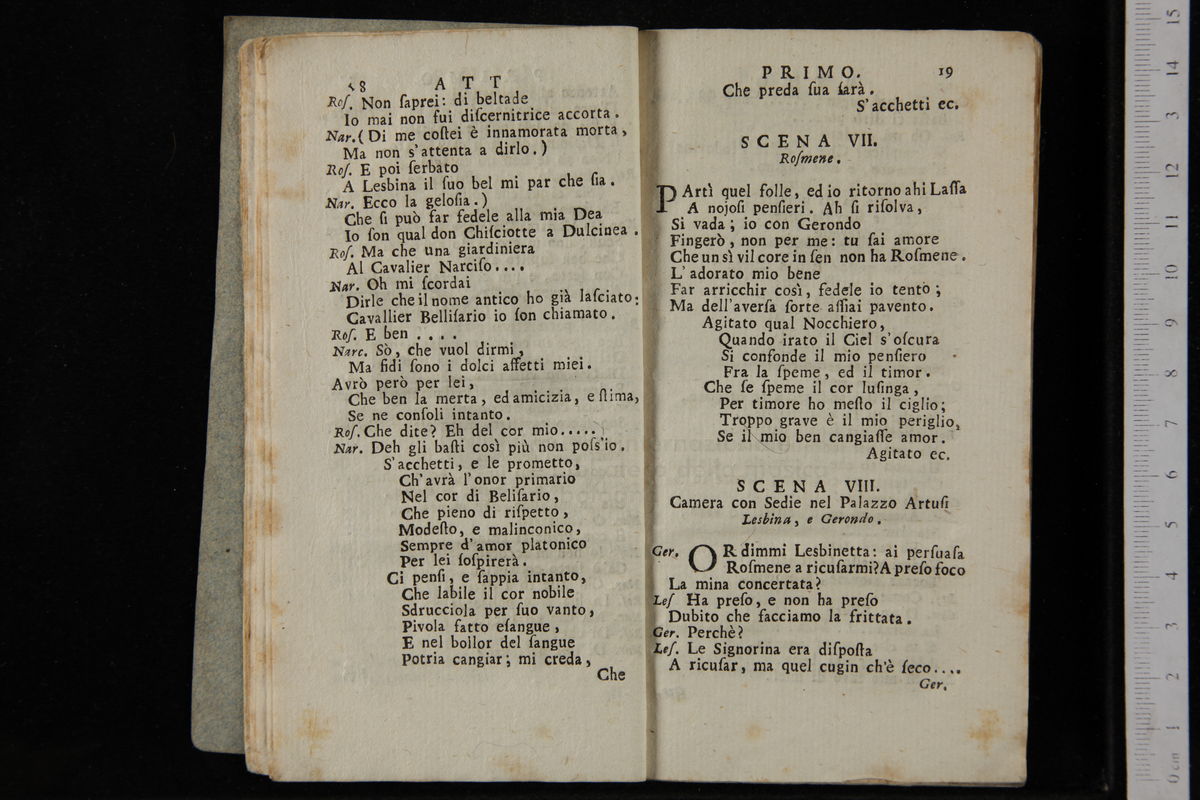 18 ATT
Roſ. Non ſaprei: di beltade
Io mai non fui diſcernitrice accorta.
Nar. (Di me coſtei è innamorata morta,
Ma non s'attenta a dirlo.)
Roſ. E poi ſerbato
A Lesbina il ſuo bel mi par che ſia.
Nar. Ecco la geloſia.)
Che ſi può far fedele alla mia Dea
Io ſon qual don Chiſciotte a Dulcinea.
Roſ. Ma che una giardiniera
Al Cavalier Narciſo....
Nar. Oh mi ſcordai
Dirle che il nome antico ho già laſciato:
Cavallier Belliſario io ſon chiamato.
Roſ. E ben ....
Narc. Sò, che vuol dirmi,
Ma fidi ſono i dolci affetti miei.
Avrò però per lei,
Che ben la merta, ed amicizia, e ſtima,
Se ne conſoli intanto.
Roſ. Che dite? Eh del cor mio.....
Nar. Deh gli baſti così più non poſs'io.
S'acchetti, e le prometto,
Ch'avrà l'onor primario
Nel cor di Beliſario,
Che pieno di riſpetto,
Modeſto, e malinconico,
Sempre d'amor platonico
Per lei ſoſpirerà.
Ci penſi, e ſappia intanto,
Che labile il cor nobile
Sdrucciola per ſuo vanto,
Pivola fatto eſangue,
E nel bollor del ſangue
Potria cangiar; mi creda,
Che
PRIMO. 19
Che preda ſua ſarà.
S'acchetti ec.
SCENA VII.
Roſmene.
PArtì quel folle, ed io ritorno ahi Laſſa
A nojoſi penſieri. Ah ſi riſolva,
Si vada; io con Gerondo
Fingerò, non per me: tu ſai amore
Che un sì vil core in ſen non ha Roſmene.
L'adorato mio bene
Far arricchir così, fedele io tento;
Ma dell'averſa ſorte aſſiai pavento.
Agitato qual Nocchiero,
Quando irato il Ciel s'oſcura
Si confonde il mio penſiero
Fra la ſpeme, ed il timor.
Che ſe ſpeme il cor luſinga,
Per timore ho meſto il ciglio;
Troppo grave è il mio periglio,
Se il mio ben cangiaſſe amor.
Agitato ec.
SCENA VIII.
Camera con Sedie nel Palazzo Artuſi
Lesbina, e Gerondo.
Ger. OR dimmi Lesbinetta: ai perſuaſa
Roſmene a ricuſarmi? A preſo foco
La mina concertata?
Leſ Ha preſo, e non ha preſo
Dubito che facciamo la frittata.
Ger. Perchè?
Leſ. Le Signorina era diſpoſta
A ricuſar, ma quel cugin ch'è ſeco....
Ger.
0 cm 1 2 3 4 5 6 7 8 9 10 11 12 13 14 15